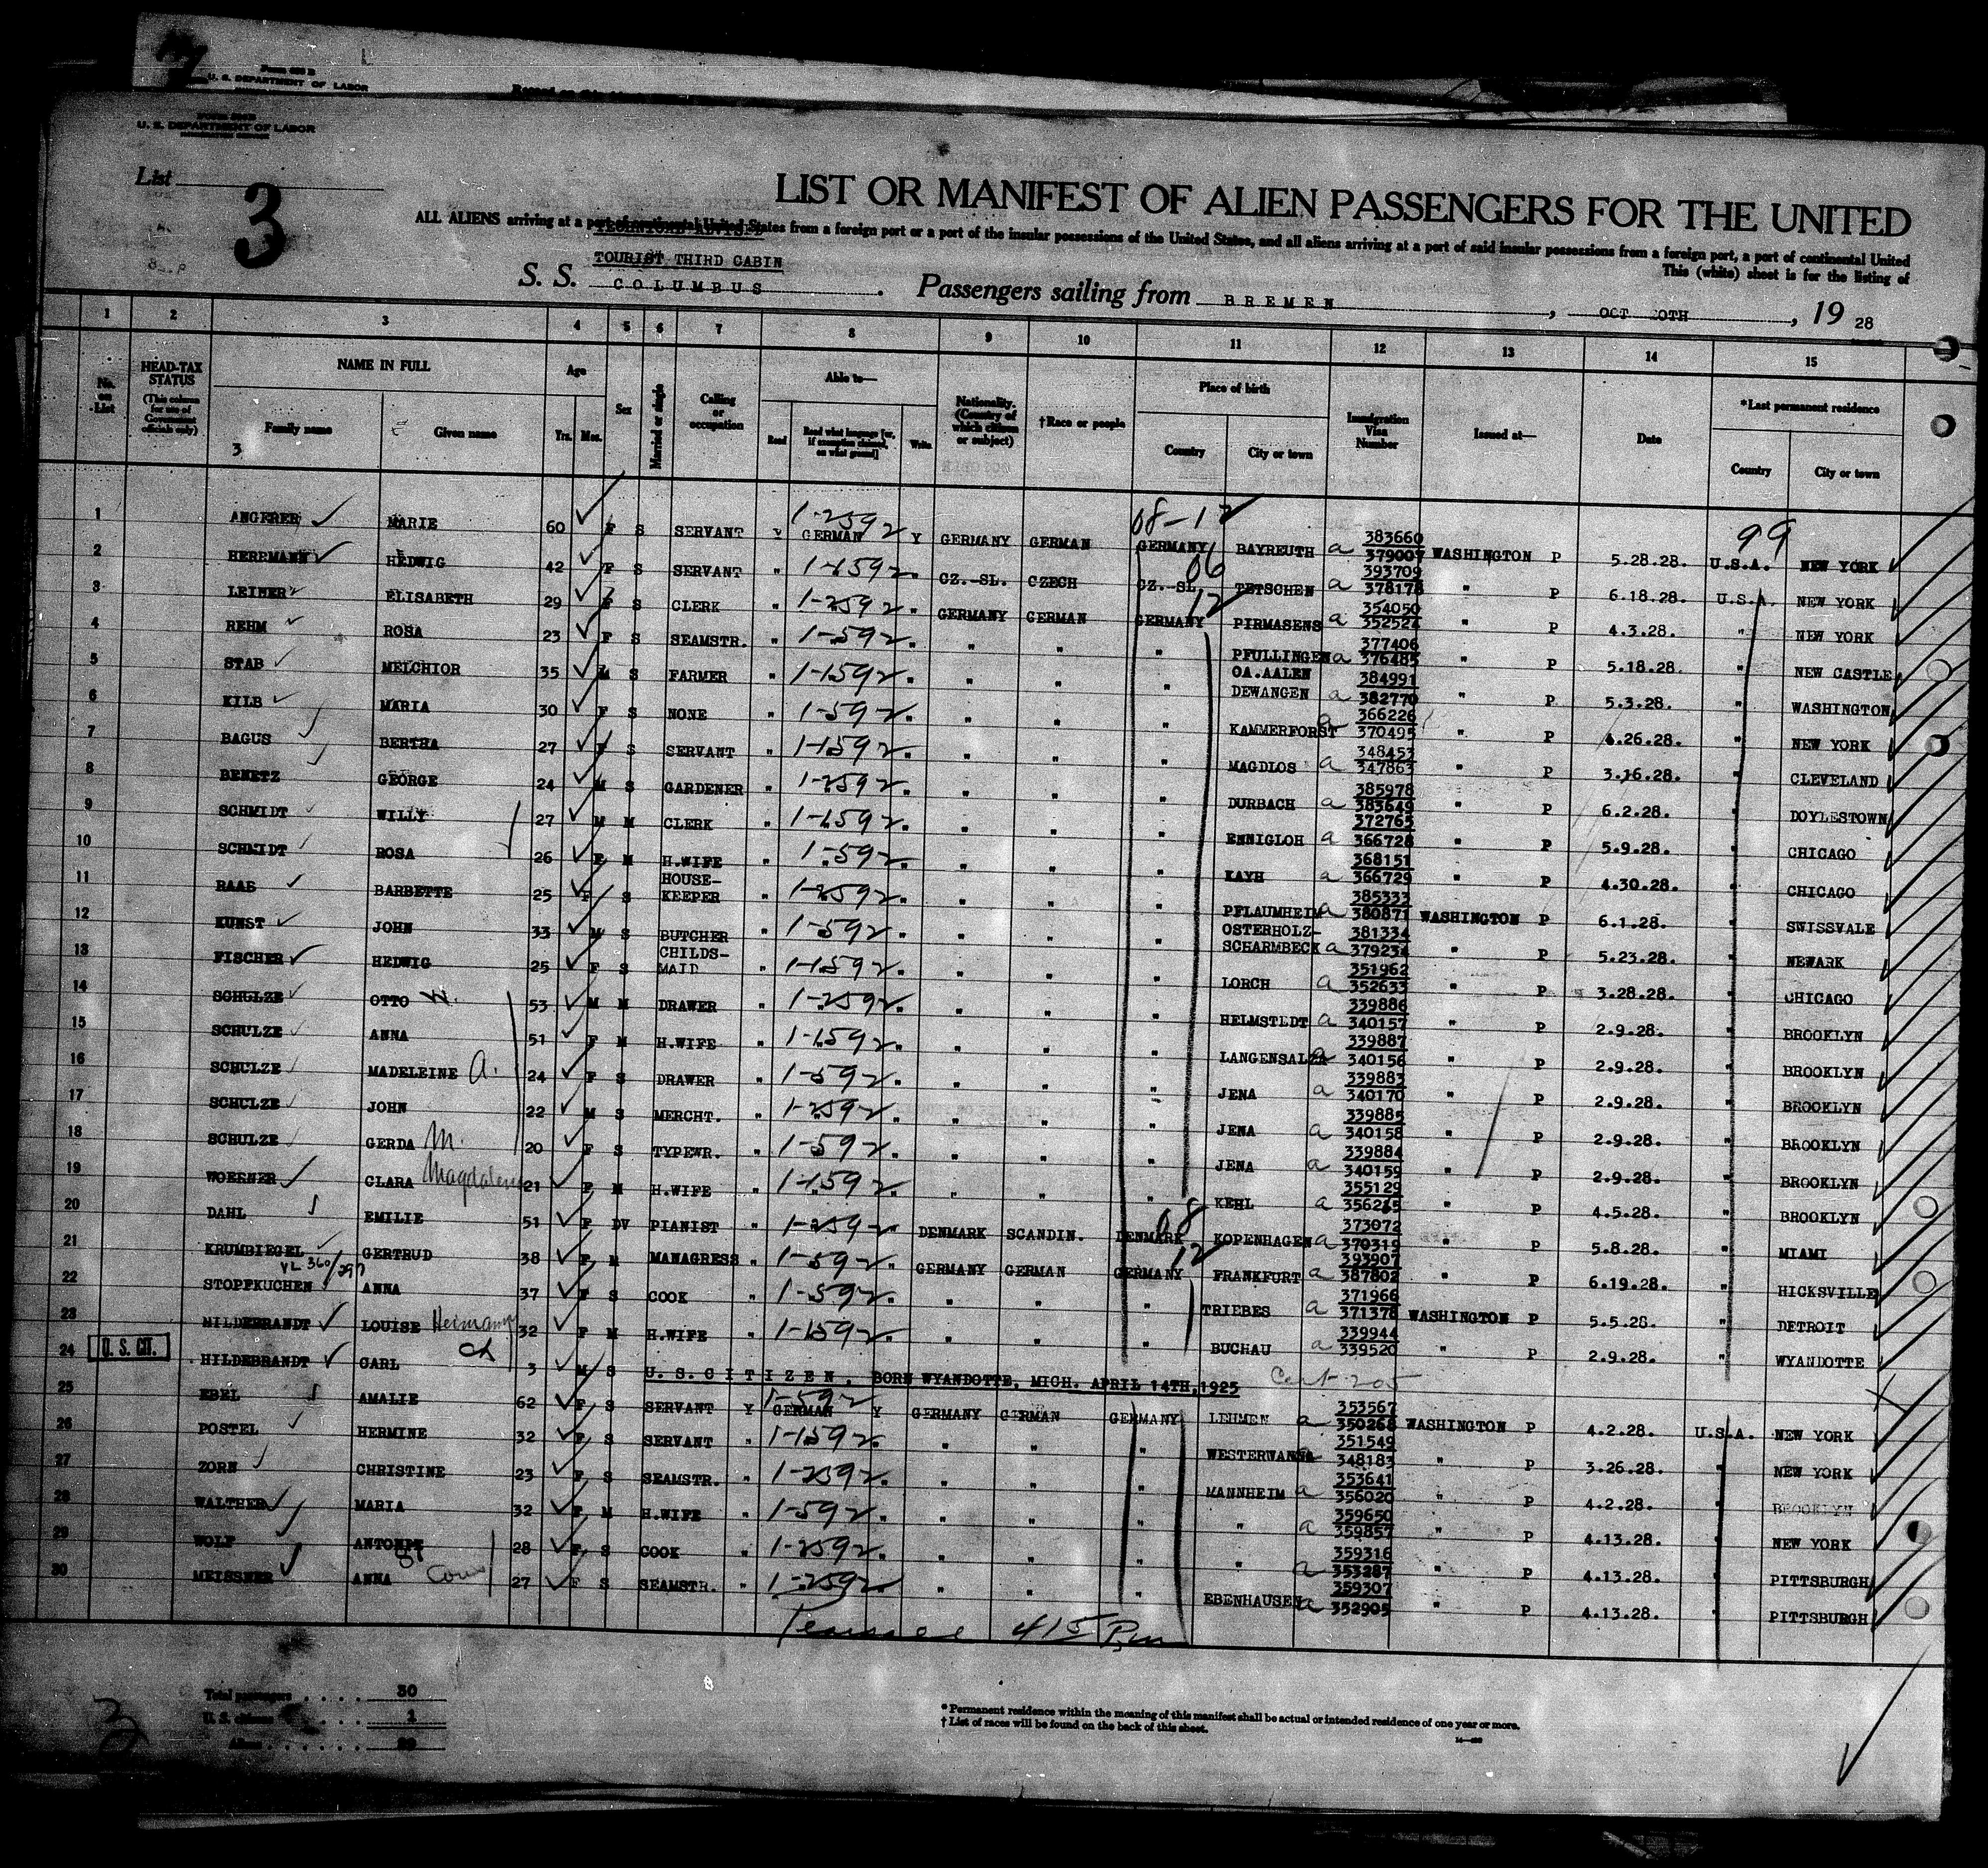 U. S. DEPARTMENT OF LABOR
U. S. DEPARTMENT OF LABOR
List
3
LIST OR MANIFEST OF ALIEN PASSENGERS FOR THE UNITED
ALL ALIENS arriving at a port of continental United States from a foreign port or a port of the insular possessions of the United States, and all aliens arriving at a port of said insular possessions from a foreign port, a port of continental United
This (white) sheet is for the listing of
TOURIST THIRD CABIN
S. S. COLUMBUS. Passengers sailing from BREMEN, OCT 20TH, 19 28
1 2 3 4 5 6 7 8 9 10 11 12 13 14 15
No. on List
HEAD-TAX STATUS (This column for use of Government officials only)
NAME IN FULL Family name Given name
Age Yrs. Mos.
Sex
Married or single
Calling or occupation
Able to— Read Read what language [or, if exemption claimed, on what ground] Write
Nationality. (Country of which citizen or subject)
†Race or people
Place of birth Country City or town
Immigration Visa Number
Issued at—
Date
*Last permanent residence Country City or town
3
1 ANGERER MARIE 60 F S SERVANT Y GERMAN Y GERMANY GERMAN GERMANY BAYREUTH a 383660 379007 WASHINGTON P 5.28.28. U.S.A. NEW YORK
2 HERRMANN HEDWIG 42 F S SERVANT " 1-1592 " CZ.-SL. CZECH CZ.-SL. TETSCHEN a 393709 378178 " P 6.18.28. U.S.A. NEW YORK
3 LEIMER ELISABETH 29 F S CLERK " 1-2592 " GERMANY GERMAN GERMANY PIRMASENS a 354050 352524 " P 4.3.28. " NEW YORK
4 REHM ROSA 23 F S SEAMSTR. " 1-592 " " " " PFULLINGEN a 377406 376485 " P 5.18.28. " NEW CASTLE
5 STAB MELCHIOR 35 M S FARMER " 1-1592 " " " " OA.AALEN DEWANGEN a 384991 382770 " P 5.3.28. " WASHINGTON
6 KILB MARIA 30 F S NONE " 1-592 " " " " KAMMERFORST a 366226 370495 " P 4.26.28. " NEW YORK
7 BAGUS BERTHA 27 F S SERVANT " 1-1592 " " " " MAGDLOS a 348453 347863 " P 3.16.28. " CLEVELAND
8 BENETZ GEORGE 24 M S GARDENER " 1-2592 " " " " DURBACH a 385978 383649 " P 6.2.28. " DOYLESTOWN
9 SCHMIDT WILLY 27 M M CLERK " 1-1592 " " " " ENNIGLOH a 372765 366728 " P 5.9.28. " CHICAGO
10 SCHMIDT ROSA 26 F M H.WIFE " 1-592 " " " " KAYH a 368151 366729 " P 4.30.28. " CHICAGO
11 RAAB BARBETTE 25 F S HOUSE-KEEPER " 1-2592 " " " " PFLAUMHEIM a 385333 380871 WASHINGTON P 6.1.28. " SWISSVALE
12 KUNST JOHN 33 M S BUTCHER " 1-592 " " " " OSTERHOLZ-SCHARMBECK a 381334 379234 " P 5.23.28. " NEWARK
13 FISCHER HEDWIG 25 F S CHILDS-MAID " 1-1592 " " " " LORCH a 351962 352633 " P 3.28.28. " CHICAGO
14 SCHULZE OTTO W. 53 M M DRAWER " 1-2592 " " " " HELMSTEDT a 339886 340157 " P 2.9.28. " BROOKLYN
15 SCHULZE ANNA 51 F M H.WIFE " 1-1592 " " " " LANGENSALZA a 339887 340156 " P 2.9.28. " BROOKLYN
16 SCHULZE MADELEINE A. 24 F S DRAWER " 1-592 " " " " JENA a 339883 340170 " P 2.9.28. " BROOKLYN
17 SCHULZE JOHN 22 M S MERCHT. " 1-2592 " " " " JENA a 339885 340158 " P 2.9.28. " BROOKLYN
18 SCHULZE GERDA M. 20 F S TYPEWR. " 1-592 " " " " JENA a 339884 340159 " P 2.9.28. " BROOKLYN
19 WOERNER CLARA Magdalena 21 F M H.WIFE " 1-1592 " " " " KEHL a 355129 356235 " P 4.5.28. " BROOKLYN
20 DAHL EMILIE 51 F DV PIANIST " 1-2592 " DENMARK SCANDIN. DENMARK KOPENHAGEN a 373072 370319 " P 5.8.28. " MIAMI
21 KRUMBIEGEL GERTRUD 38 F M MANAGRESS " 1-592 " GERMANY GERMAN GERMANY FRANKFURT a 393907 387802 " P 6.19.28. " HICKSVILLE
22 STOPFKUCHEN ANNA 37 F S COOK " 1-592 " " " " TRIEBES a 371966 371378 WASHINGTON P 5.5.28. " DETROIT
23 HILDEBRANDT LOUISE 32 F M H.WIFE " 1-1592 " " " " BUCHAU a 339944 339520 " P 2.9.28. " WYANDOTTE
24 U.S. CIT. HILDEBRANDT CARL ch 3 M S U.S.CITIZEN, BORN WYANDOTTE, MICH. APRIL 14TH, 1925 Cert 205
25 EBEL AMALIE 62 F S SERVANT Y GERMAN Y GERMANY GERMAN GERMANY LEHMEN a 353567 350268 WASHINGTON P 4.2.28. U.S.A. NEW YORK
26 POSTEL HERMINE 32 F S SERVANT " 1-1592 " " " " WESTERWANNA 351549 348183 " P 3.26.28. " NEW YORK
27 ZORN CHRISTINE 23 F S SEAMSTR. " 1-2592 " " " " MANNHEIM a 353641 356020 " P 4.2.28. " BROOKLYN
28 WALTHER MARIA 32 F M H.WIFE " 1-592 " " " " " a 359650 359857 " P 4.13.28. " NEW YORK
29 WOLF 28 F S COOK " 1-2592 " " " " " a 359316 353287 " P 4.13.28. " PITTSBURGH
30 MEISSNER ANNA 27 F S SEAMSTR. " 1-2592 " " " EBENHAUSEN a 359307 352905 " P 4.13.28. " PITTSBURGH
415 Pm
Total passengers 30
U. S. citizens 1
Aliens 29
* Permanent residence within the meaning of this manifest shall be actual or intended residence of one year or more.
† List of races will be found on the back of this sheet.